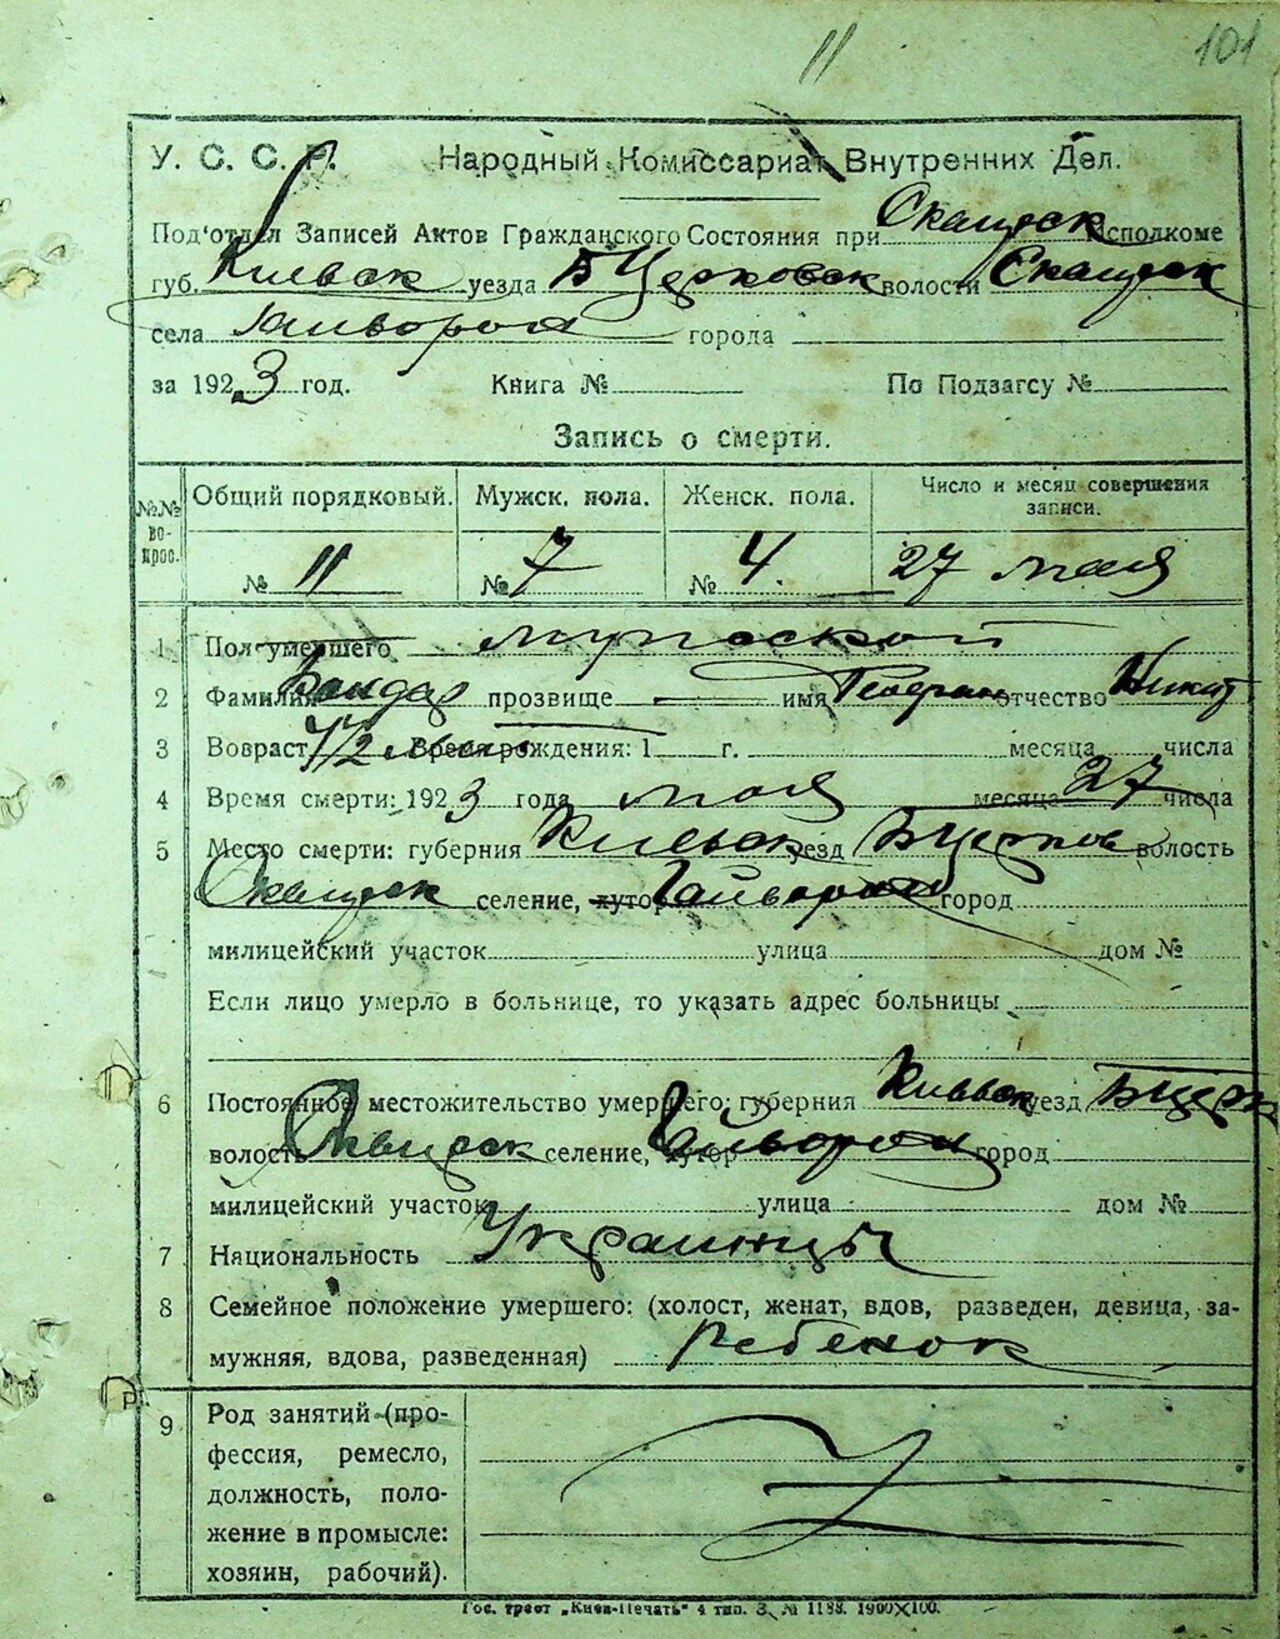 11 101
У. С. С. Р. Народный Комиссариат Внутренних Дел.
Под'отдел Записей Актов Гражданского Состояния при Сквирск Исполкоме
губ. Киевск уезда Б Церковск волости Сквирск
села Гайворон города
за 1923 год. Книга № По Подзагсу №
Запись о смерти.
№№ вопрос. Общий порядковый. Мужск. пола. Женск. пола. Число и месяц совершения записи.
№ 11 № 7 № 4. 27 мая
1 Пол умершего мужской
2 Фамилия Бондар прозвище — имя отчество Никит
3 Возраст 1/2 Время рождения: 1 г. месяца числа
4 Время смерти: 1923 года мая месяца 27 числа
5 Место смерти: губерния Киевск уезд Б Церков волость
Сквирск селение, хутор Гайворон город
милицейский участок улица дом №
Если лицо умерло в больнице, то указать адрес больницы
6 Постоянное местожительство умершего: губерния Киевск уезд Б Церк
волость Сквирск селение, хутор Гайворон город
милицейский участок улица дом №
7 Национальность Украинцы
8 Семейное положение умершего: (холост, женат, вдов, разведен, девица, за-
мужняя, вдова, разведенная) Ребенок
9 Род занятий (про-
фессия, ремесло,
должность, поло-
жение в промысле:
хозяин, рабочий).
Гос. трест „Киев-Печать“ 4 тип. З. № 1188. 1900X100.